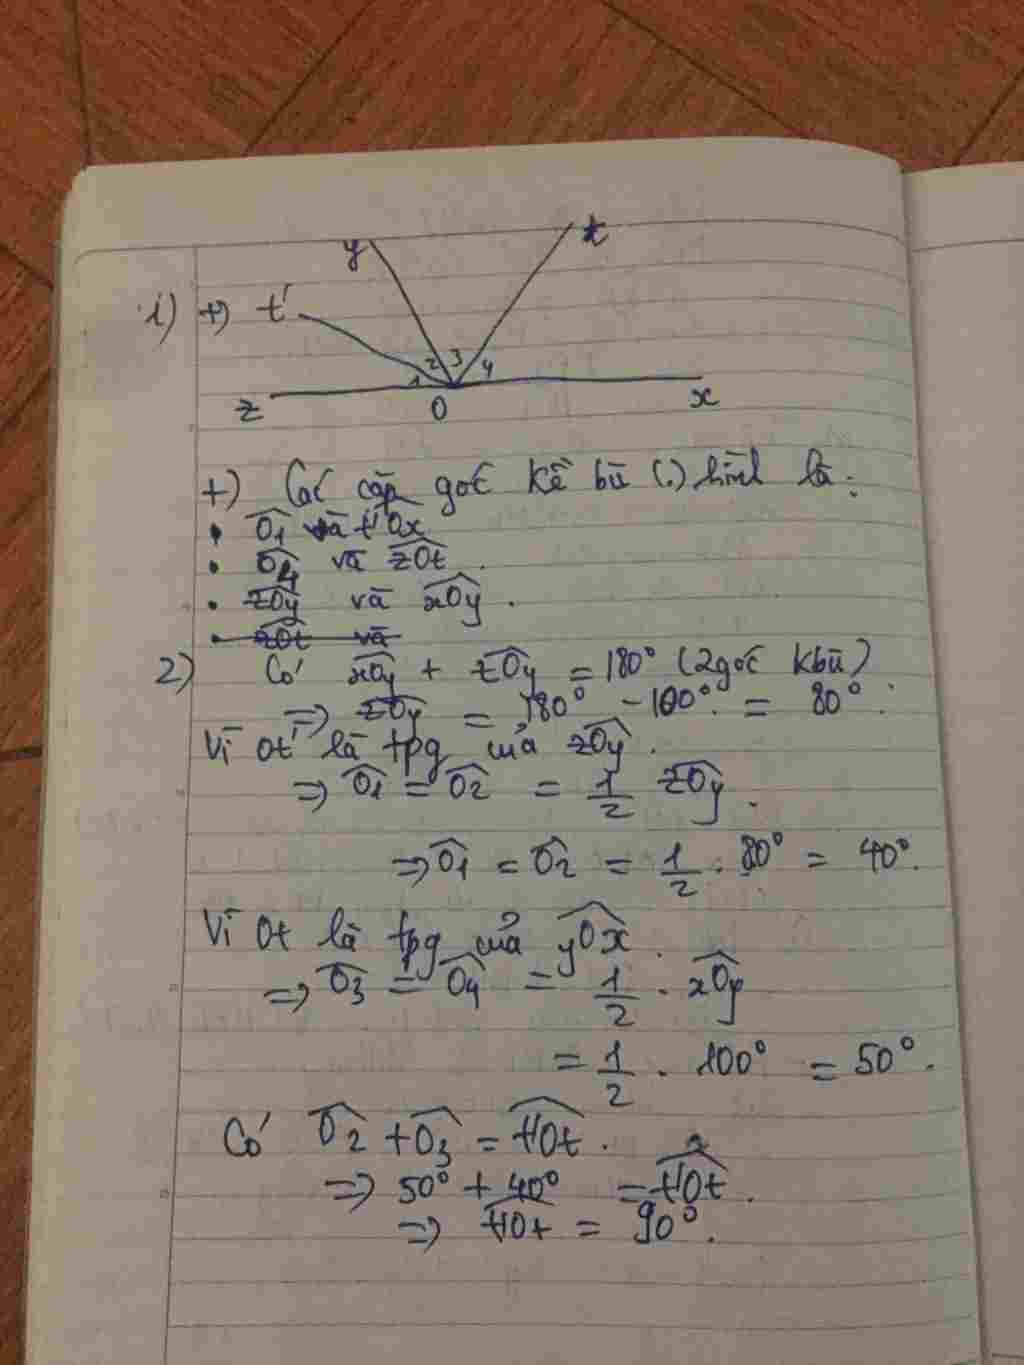 y t
1) +) t'
2 3
1 4
z O x
+) Các cặp góc kề bù (.) hình là:
• Ô1 và t'Ôx
• Ô4 và zÔt.
• zÔy và xÔy.
• zÔt và
2) Có xÔy + zÔy = 180° (2 góc kbù)
=> zÔy = 180° - 100° = 80°.
Vì Ot' là tpg của zÔy.
=> Ô1 = Ô2 = 1/2 zÔy.
=> Ô1 = Ô2 = 1/2 . 80° = 40°.
Vì Ot là tpg của yÔx.
=> Ô3 = Ô4 = 1/2 . xÔy
= 1/2 . 100° = 50°.
Có Ô2 + Ô3 = t'Ôt.
=> 50° + 40° = t'Ôt.
=> t'Ôt = 90°.